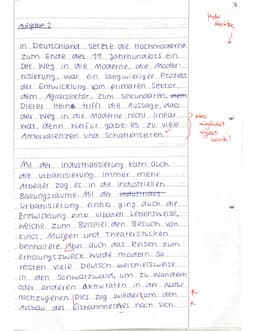 Aufgabe 2
In Deutschland setzte die Hochmoderne
zum Ende des 19. Jahrhunderts ein.
Der Weg in die Moderne, die Moder-
nisierung, war ein langwieriger Prozess
der Entwicklung vom primären Sektor,
dem Agrarsektor, zum sekundären,
Dieter Hein trifft die Aussage, dass
der Weg in die Moderne nicht linear
war, denn hierfür gäbe es zu viele
Ambivalenzen und Schattenseiten.
Mit der Industrialisierung kam auch
die Urbanisierung. Immer mehr
Arbeiter zog es in die industriellen
Ballungsräume. Mit der Industrialis
Urbanisierung einher ging auch die
Entwicklung eine urbanen Lebensweise,
welche zum Beispiel den Besuch von
Kinos, Museen und Theaterstücken
beinhaltete. Aber auch das Reisen zum
Erholungszweck wurde modern. So
reisten viele Deutsch beispielsweise
in den Schwarzwald, um zu Wandern
oder anderen Aktivitäten in der Natur
nachzugehen. Dies zog wiederum den
Ausbau des Eisbahnnetzes nach sich.
R
R